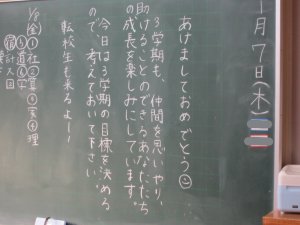 1月7日(木)
あけましておめでとう☺
3学期も、仲間を思いやり、
助けることのできるあなたたち
の成長を楽しみにしています。
今日は3学期の目標を決める
ので、考えておいて下さい。
転校生も来るよー!
1/8(金)①社②算③実④理
⑤道⑥学
宿計ス日